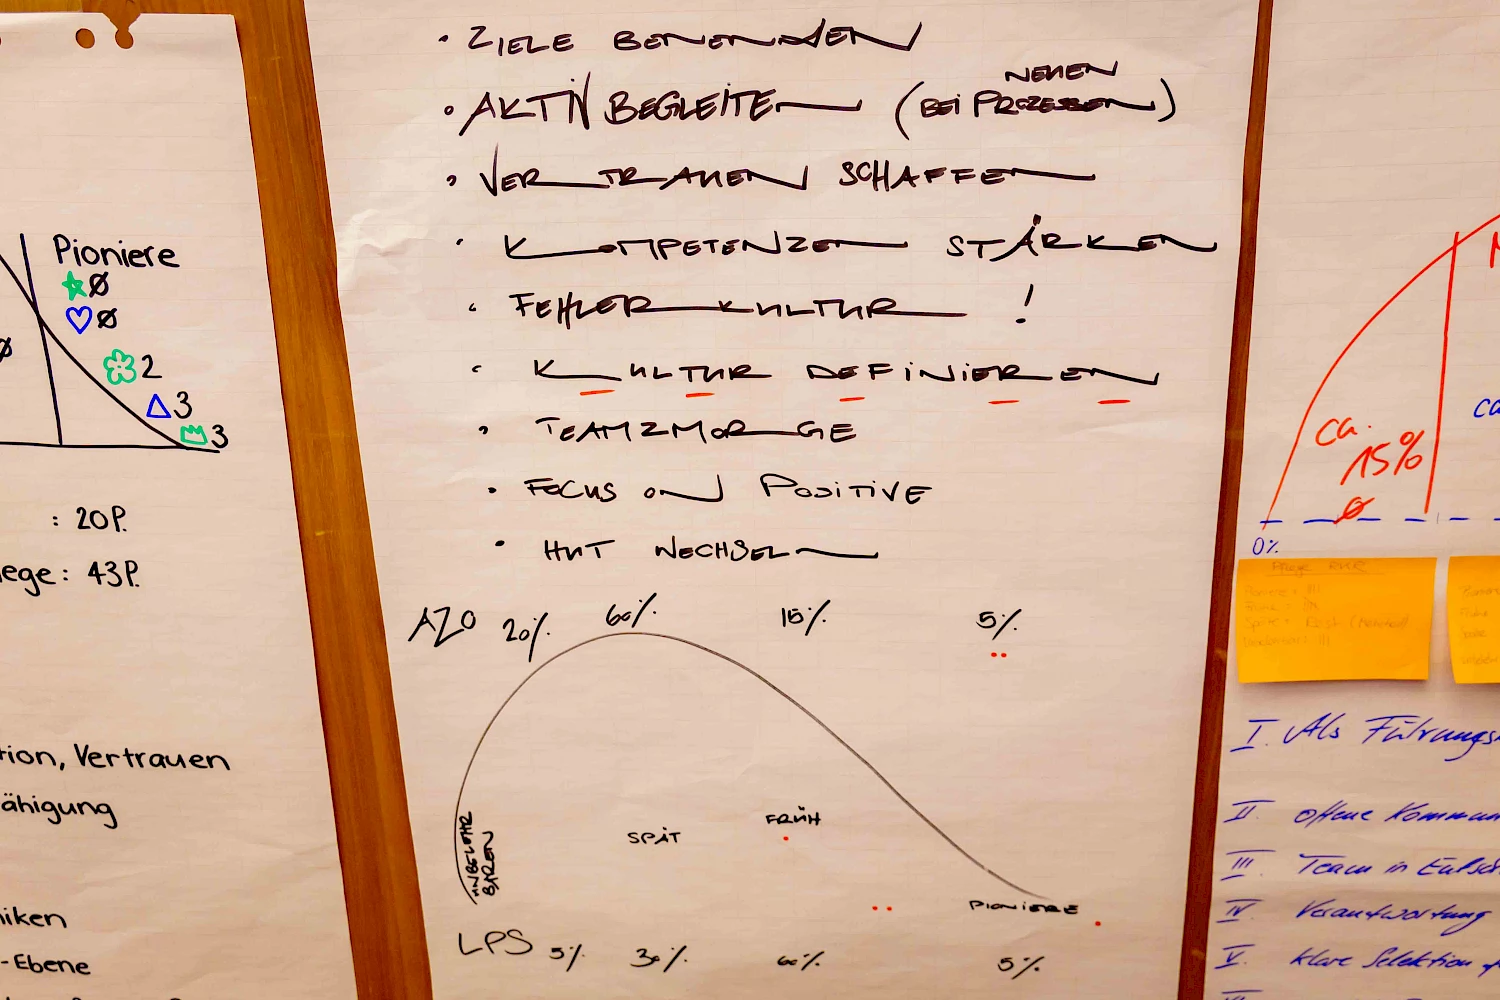 Pioniere
Ø
Ø
Ø
2
3
3
: 20P.
ege: 43P.
tion, Vertrauen
ähigung
niken
-Ebene
• ZIELE BENENNEN
• AKTIV BEGLEITEN (BEI NEUEN PROZESSEN)
• VERTRAUEN SCHAFFEN
• KOMPETENZEN STÄRKEN
• FEHLERKULTUR !
• KULTUR DEFINIEREN
• TEAMZMORGE
• FOCUS ON POSITIVE
• HUT WECHSELN
AZO 20% 60% 15% 5%
UNBELEHR
BAREN
SPÄT
FRÜH
PIONIERE
LPS 5% 30% 60% 5%
ca.
15%
Ø
0%
ca
Pflege
I. Als Führungs
II. offene Kommun
III. Team in
IV. Verantwortung
V. klare Selektion